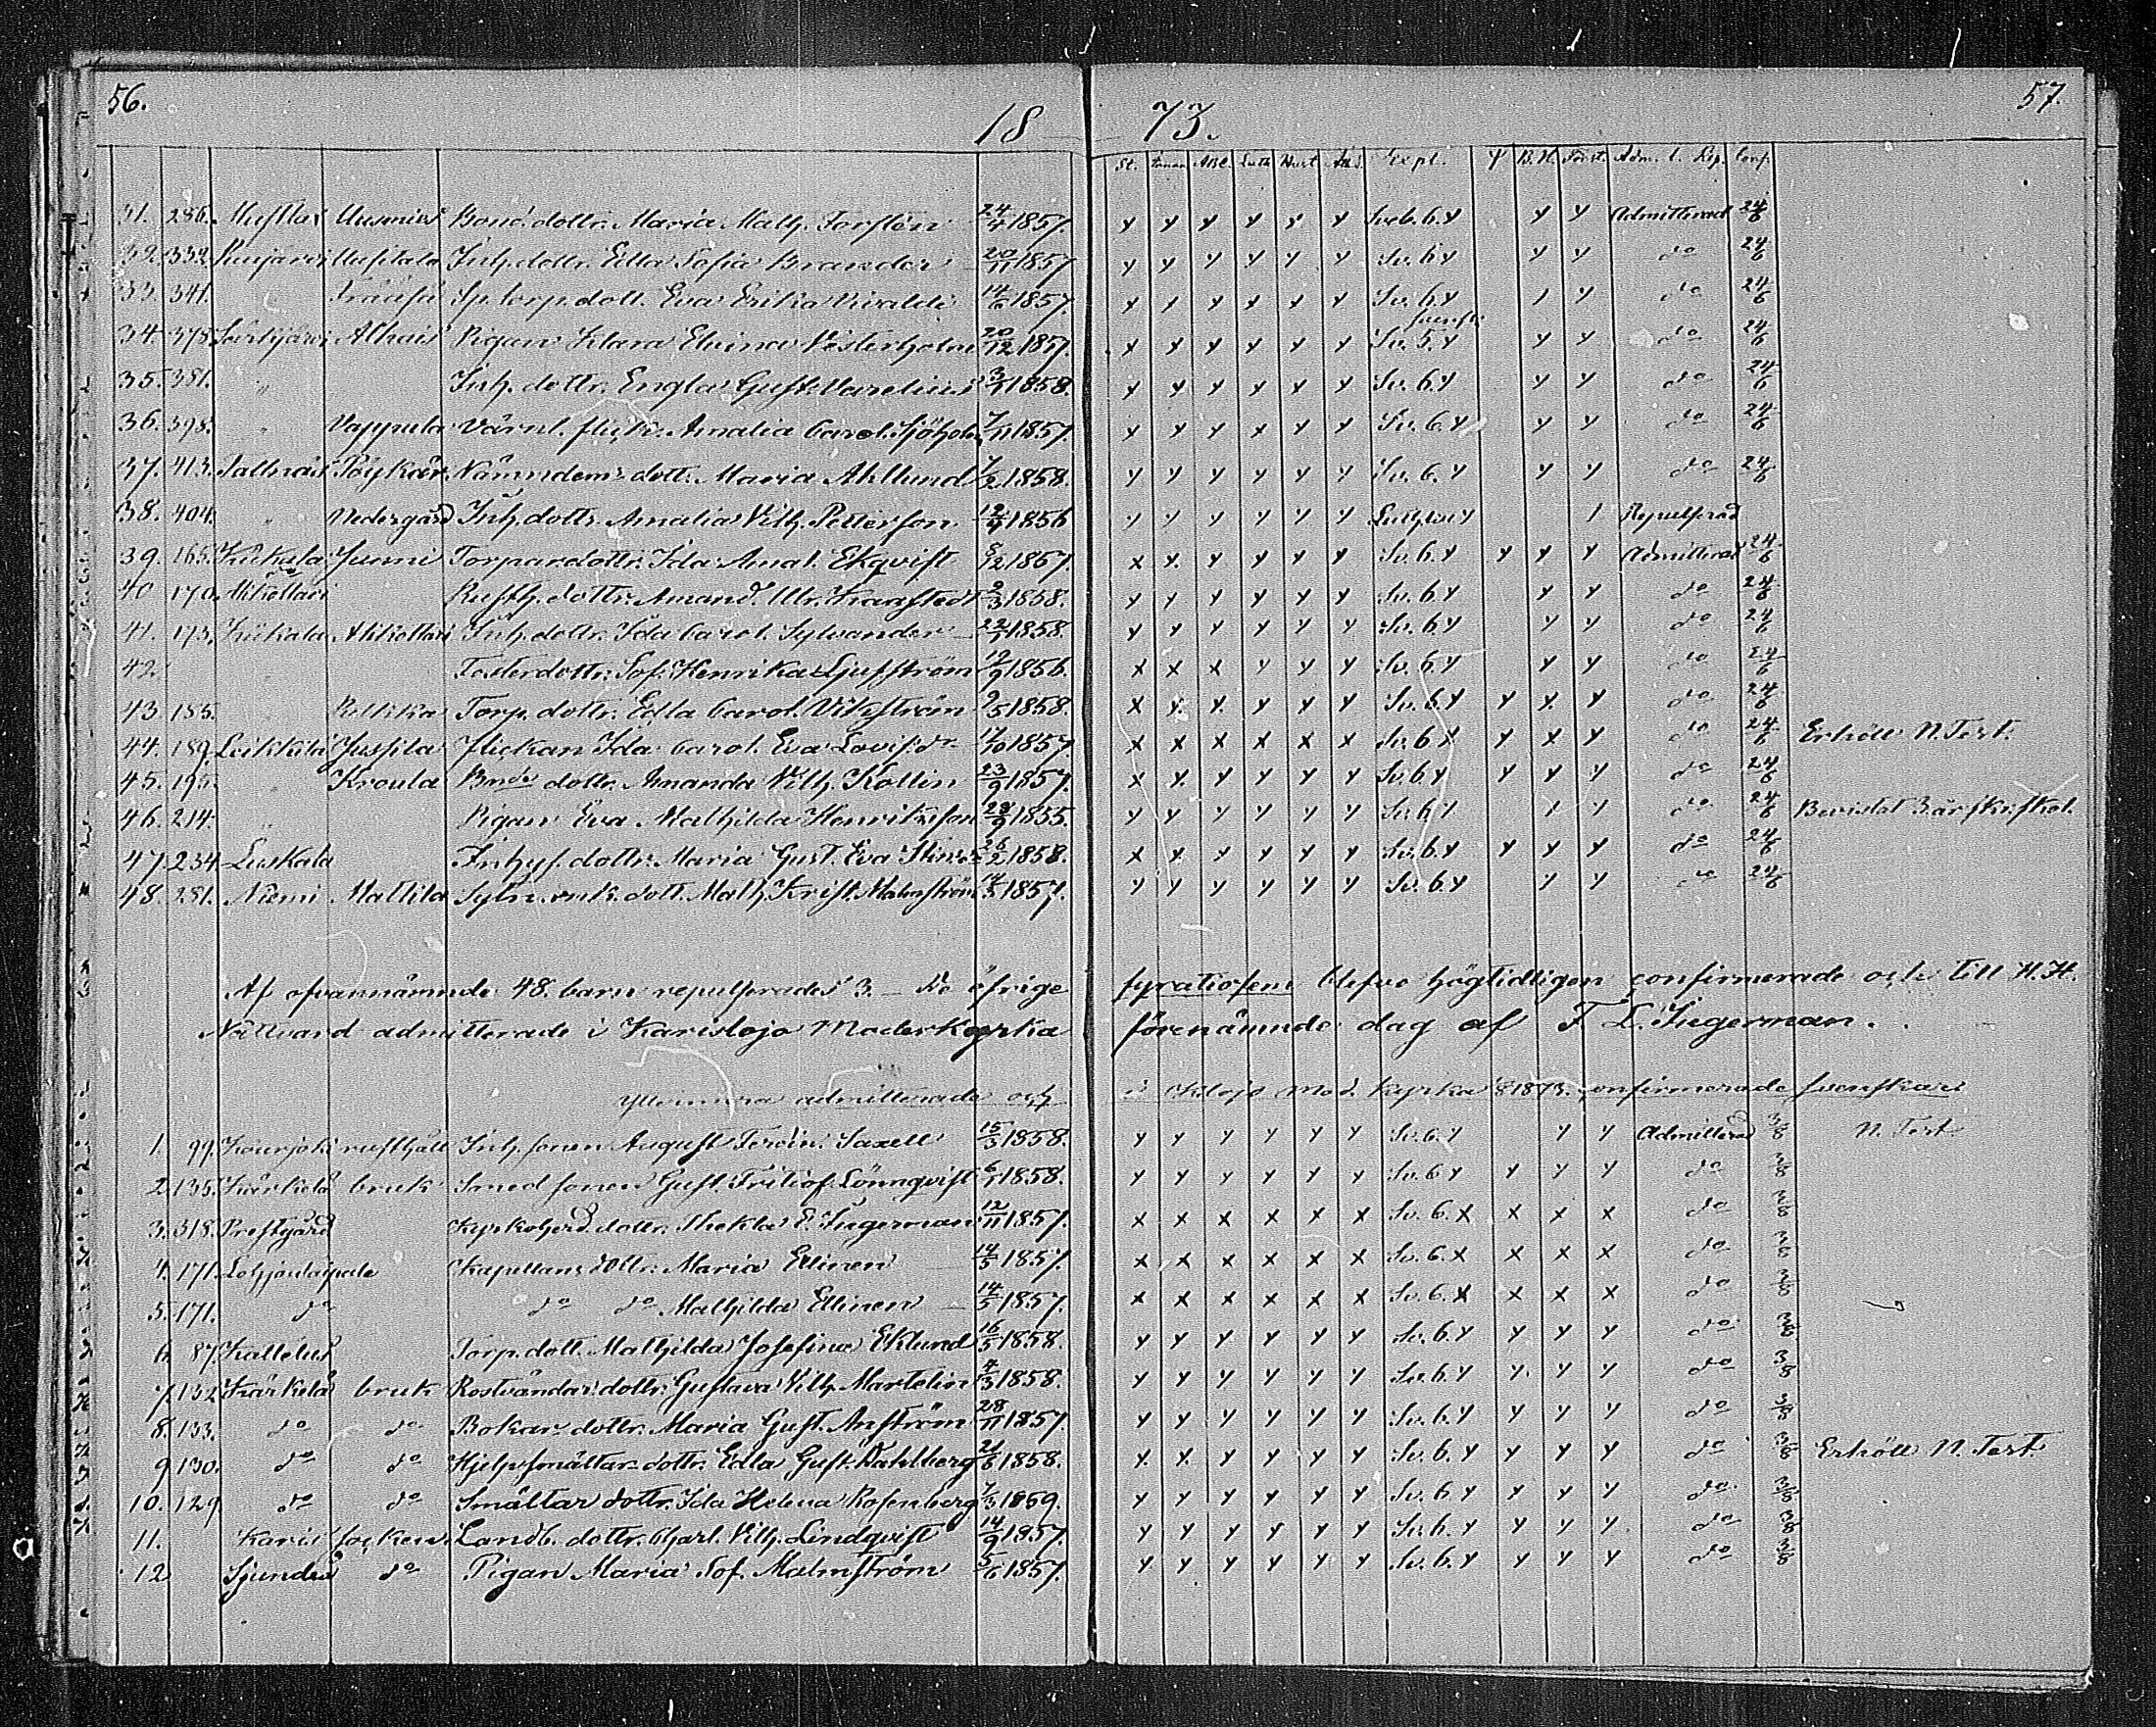 56. 18 73. 57.
St. Innan ABC. Luth. Hust. Ath. Expl. Ψ B.H. Först. Adm. l. Rep. Conf.
31. 286. Uusmies Bond. dottr. Maria Math. Forstén 24/4 1857. y y y y y y Sveb. 6. y y y Admitterad 24/6
32. 332. Inh. dottr. Edla Sofia Brander 20/11 1857 y y y y y y Sv. 6 y y y do 24/6
33. 341. Sp. torp. dott. Eva Erika 14/6 1857. x y y x x y Sv. 6. y y do 24/6
34. 378. Alhais Pigan Klara Elvina Vesterholm 20/12 1857. x y y y y y Sv. 5. y y y do 24/6
35. 381. " Inh. dottr. Engla Gust. 1858. y y y y y y Sv. 6. y y y do 24/6
36. 398. " Vappula Värnl. flick. Amalia Carol. Sjöholm 7/11 1857. y y y x y y Sv. 6. y y y do 24/6
37. 413. Sallnäs Nämndem. dott. Maria Ahllund 7/2 1858. y y y y y y Sv. 6. y y y do 24/6
38. 404. " Nedergård Inh. dottr. Amalia Vilh. Petterson 1856 y y y y y y Repulserad
39. 165. Kiikala Junni Torpardottr. Ida Amal. Ekqvist x x y y y y Sv. 6. y y y y Admitterad 24/6
40 170. Rusth. dottr. Amand. Ulr. 1858. y y y y y y Sv. 6. y y y do 24/6
41. 173. Kiikala Inh. dottr. Ida Carol. Sylvander 1858. y y y y y y Sv. 6. y y y do 24/6
42. Fosterdottr. Sof. Henrika 1856. x x x y y y Sv. 6. y y y do 24/6
43. 185. Torp. dottr. Edla Carol. Vikström 9/5 1858. x y y y y y Sv. 6. y y y y do 24/6
44. 189. Leikkilä Jussila flickan Ida Carol. Eva Lovis. dr. 17/10 1857 x x x x x x Sv. 6 x y x y do 24/6 Erhöll N. Test.
45. 195. Kroula Bonde dottr. Amanda Vilh. Kollin 23/9 1857. x y y y y y Sv. 6 y y y y do 24/6
46. 214. Pigan Eva Mathilda Henriksson 1855. y y y y y y Sv. 6 y y y do 24/6 Bevistat 3 år skrifskol.
47. 234. Luskala Inhys. dottr. Maria Gust. Eva 26/2 1858. x y y y y y Sv. 6. y y y y do 24/6
48. 281. Niemi Mattila dott. Math. Krist. Malmström 1857. y y y y y y Sv. 6. y y y do 24/6
Af ofvannämnde 48. barn repulserades 3. – De öfrige fyratiofem blefvo högtidligen confirmerade och till H. H.
Nattvard admitterade i Karislojo Moderkyrka förenämnde dag af F. L. Fugerman.
Ytterligare admitterade och i Klojo mod. kyrka 1873. confirmerade Svenskar:
1. 99. rusthåll Inh. sonen August Ferdin. Saxell 15/3 1858. y y y y y y Sv. 6. y y y Admitterad 3/8 N. Test.
2. 135. Kärkelä bruk Smed sonen Gust. Fritiof Lönnqvist 1858. y y y y y y Sv. 6 y y y y do 3/8
3. 318. Prestgård Kyrkoherd. dottr. Thekla E. Fugerman 12/11 1857. x x x x x x Sv. 6. x x x x do 3/8
4. 171. Lohjantaipale Kapellans dottr. Maria Ellinen 14/5 1857. x x x x x x Sv. 6. x x x x do 3/8
5. 171. do do do Mathilda Ellinen 14/5 1857. x x x x x x Sv. 6. x x x x do 3/8
6. 87. Kattelus Torp. dott. Mathilda Josefina Eklund 16/5 1858. y y y y y y Sv. 6. y y y y do 3/8
7. 132. Kärkelä bruk Rostvändar dottr. Gustava Vilh. Martelin 4/3 1858. y y y y y y Sv. 6. y y y y do 3/8
8. 133. do do Bokar dottr. Maria Gust. 28/11 1857. y y y y y y Sv. 6. y y y y do 3/8
9 130. do do Hjelpsmältar dottr. Edla Gust. Dahlberg 1858. y y y y y y Sv. 6. y y y y do 3/8 Erhöll N. Test.
10. 129 do do Smältar dottr. Ida Helena Rosenberg 7/3 1859. y y y y y y Sv. 6. y y y y do 3/8
11. Karis socken. Landb. dottr. Charl. Vilh. Lindqvist 14/9 1857. y y y y y y Sv. 6. y y y y do 3/8
12 Sjundeå do Pigan Maria Sof. Malmström 5/6 1857. y y y y y y Sv. 6. y y y y do 3/8